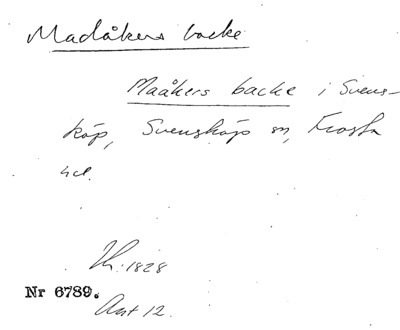 Madåkers backe
Maåkers backe i Svens-
köp, Svensköps sn, Frosta
hd.
Th. 1828
Nr 6789.
Ant 12.